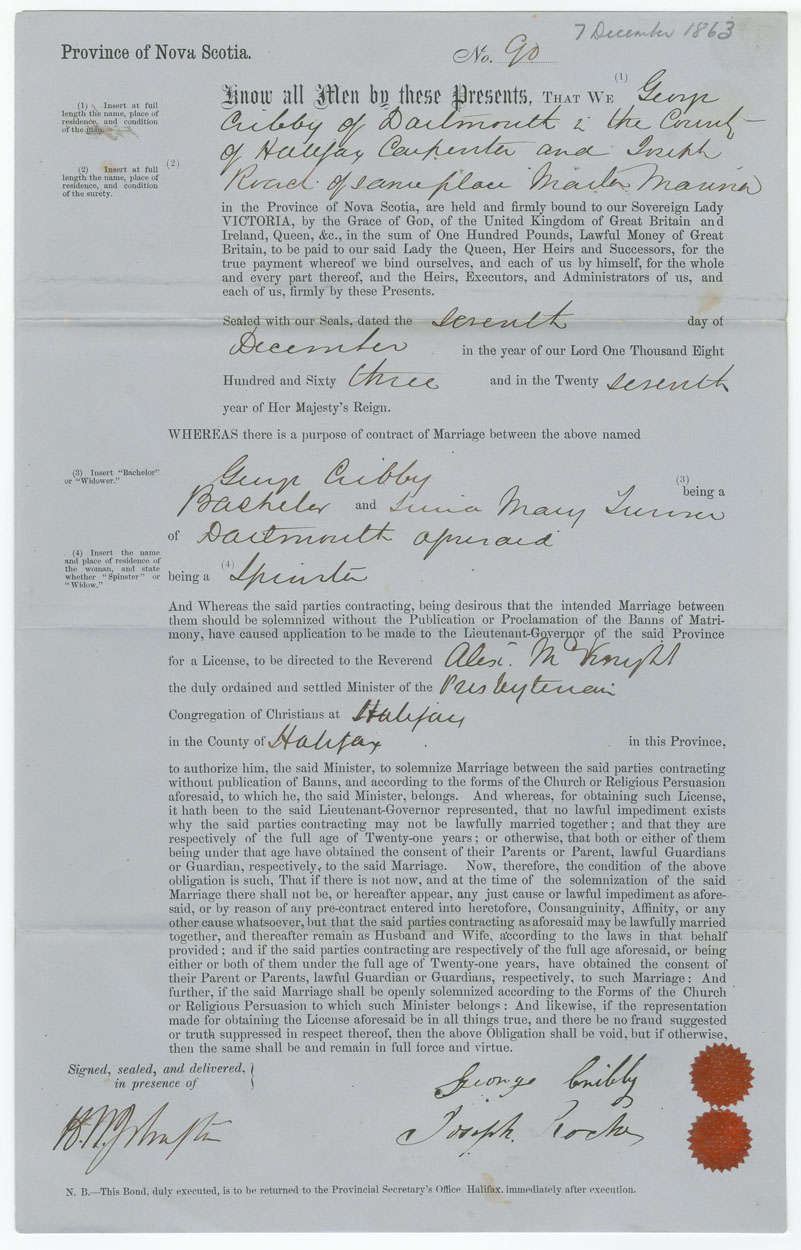 7 December 1863
Province of Nova Scotia.
No. 90
(1)
Know all Men by these Presents, THAT WE George
Cribby of Dartmouth in the County
of Halifax Carpenter and Joseph
(2)
of same place Master Mariner
(1) Insert at full
length the name, place of
residence, and condition
of the man.
(2) Insert at full
length the name, place of
residence, and condition
of the surety.
in the Province of Nova Scotia, are held and firmly bound to our Sovereign Lady
VICTORIA, by the Grace of GOD, of the United Kingdom of Great Britain and
Ireland, Queen, &c., in the sum of One Hundred Pounds, Lawful Money of Great
Britain, to be paid to our said Lady the Queen, Her Heirs and Successors, for the
true payment whereof we bind ourselves, and each of us by himself, for the whole
and every part thereof, and the Heirs, Executors, and Administrators of us, and
each of us, firmly by these Presents.
Sealed with our Seals, dated the seventh day of
December in the year of our Lord One Thousand Eight
Hundred and Sixty three and in the Twenty seventh
year of Her Majesty's Reign.
WHEREAS there is a purpose of contract of Marriage between the above named
(3) Insert "Bachelor"
or "Widower."
George Cribby (3) being a
Bachelor and Mary Turner
of Dartmouth aforesaid
(4) Insert the name
and place of residence of
the woman, and state
whether "Spinster" or
"Widow."
being a (4) Spinster
And Whereas the said parties contracting, being desirous that the intended Marriage between
them should be solemnized without the Publication or Proclamation of the Banns of Matri-
mony, have caused application to be made to the Lieutenant-Governor of the said Province
for a License, to be directed to the Reverend Alexr. McKnight
the duly ordained and settled Minister of the Presbyterian
Congregation of Christians at Halifax
in the County of Halifax in this Province,
to authorize him, the said Minister, to solemnize Marriage between the said parties contracting
without publication of Banns, and according to the forms of the Church or Religious Persuasion
aforesaid, to which he, the said Minister, belongs. And whereas, for obtaining such License,
it hath been to the said Lieutenant-Governor represented, that no lawful impediment exists
why the said parties contracting may not be lawfully married together; and that they are
respectively of the full age of Twenty-one years; or otherwise, that both or either of them
being under that age have obtained the consent of their Parents or Parent, lawful Guardians
or Guardian, respectively, to the said Marriage. Now, therefore, the condition of the above
obligation is such, That if there is not now, and at the time of the solemnization of the said
Marriage there shall not be, or hereafter appear, any just cause or lawful impediment as afore-
said, or by reason of any pre-contract entered into heretofore, Consanguinity, Affinity, or any
other cause whatsoever, but that the said parties contracting as aforesaid may be lawfully married
together, and thereafter remain as Husband and Wife, according to the laws in that behalf
provided; and if the said parties contracting are respectively of the full age aforesaid, or being
either or both of them under the full age of Twenty-one years, have obtained the consent of
their Parent or Parents, lawful Guardian or Guardians, respectively, to such Marriage: And
further, if the said Marriage shall be openly solemnized according to the Forms of the Church
or Religious Persuasion to which such Minister belongs: And likewise, if the representation
made for obtaining the License aforesaid be in all things true, and there be no fraud suggested
or truth suppressed in respect thereof, then the above Obligation shall be void, but if otherwise,
then the same shall be and remain in full force and virtue.
Signed, sealed, and delivered,
in presence of
George Cribby
Joseph
N. B.—This Bond, duly executed, is to be returned to the Provincial Secretary's Office Halifax, immediately after execution.